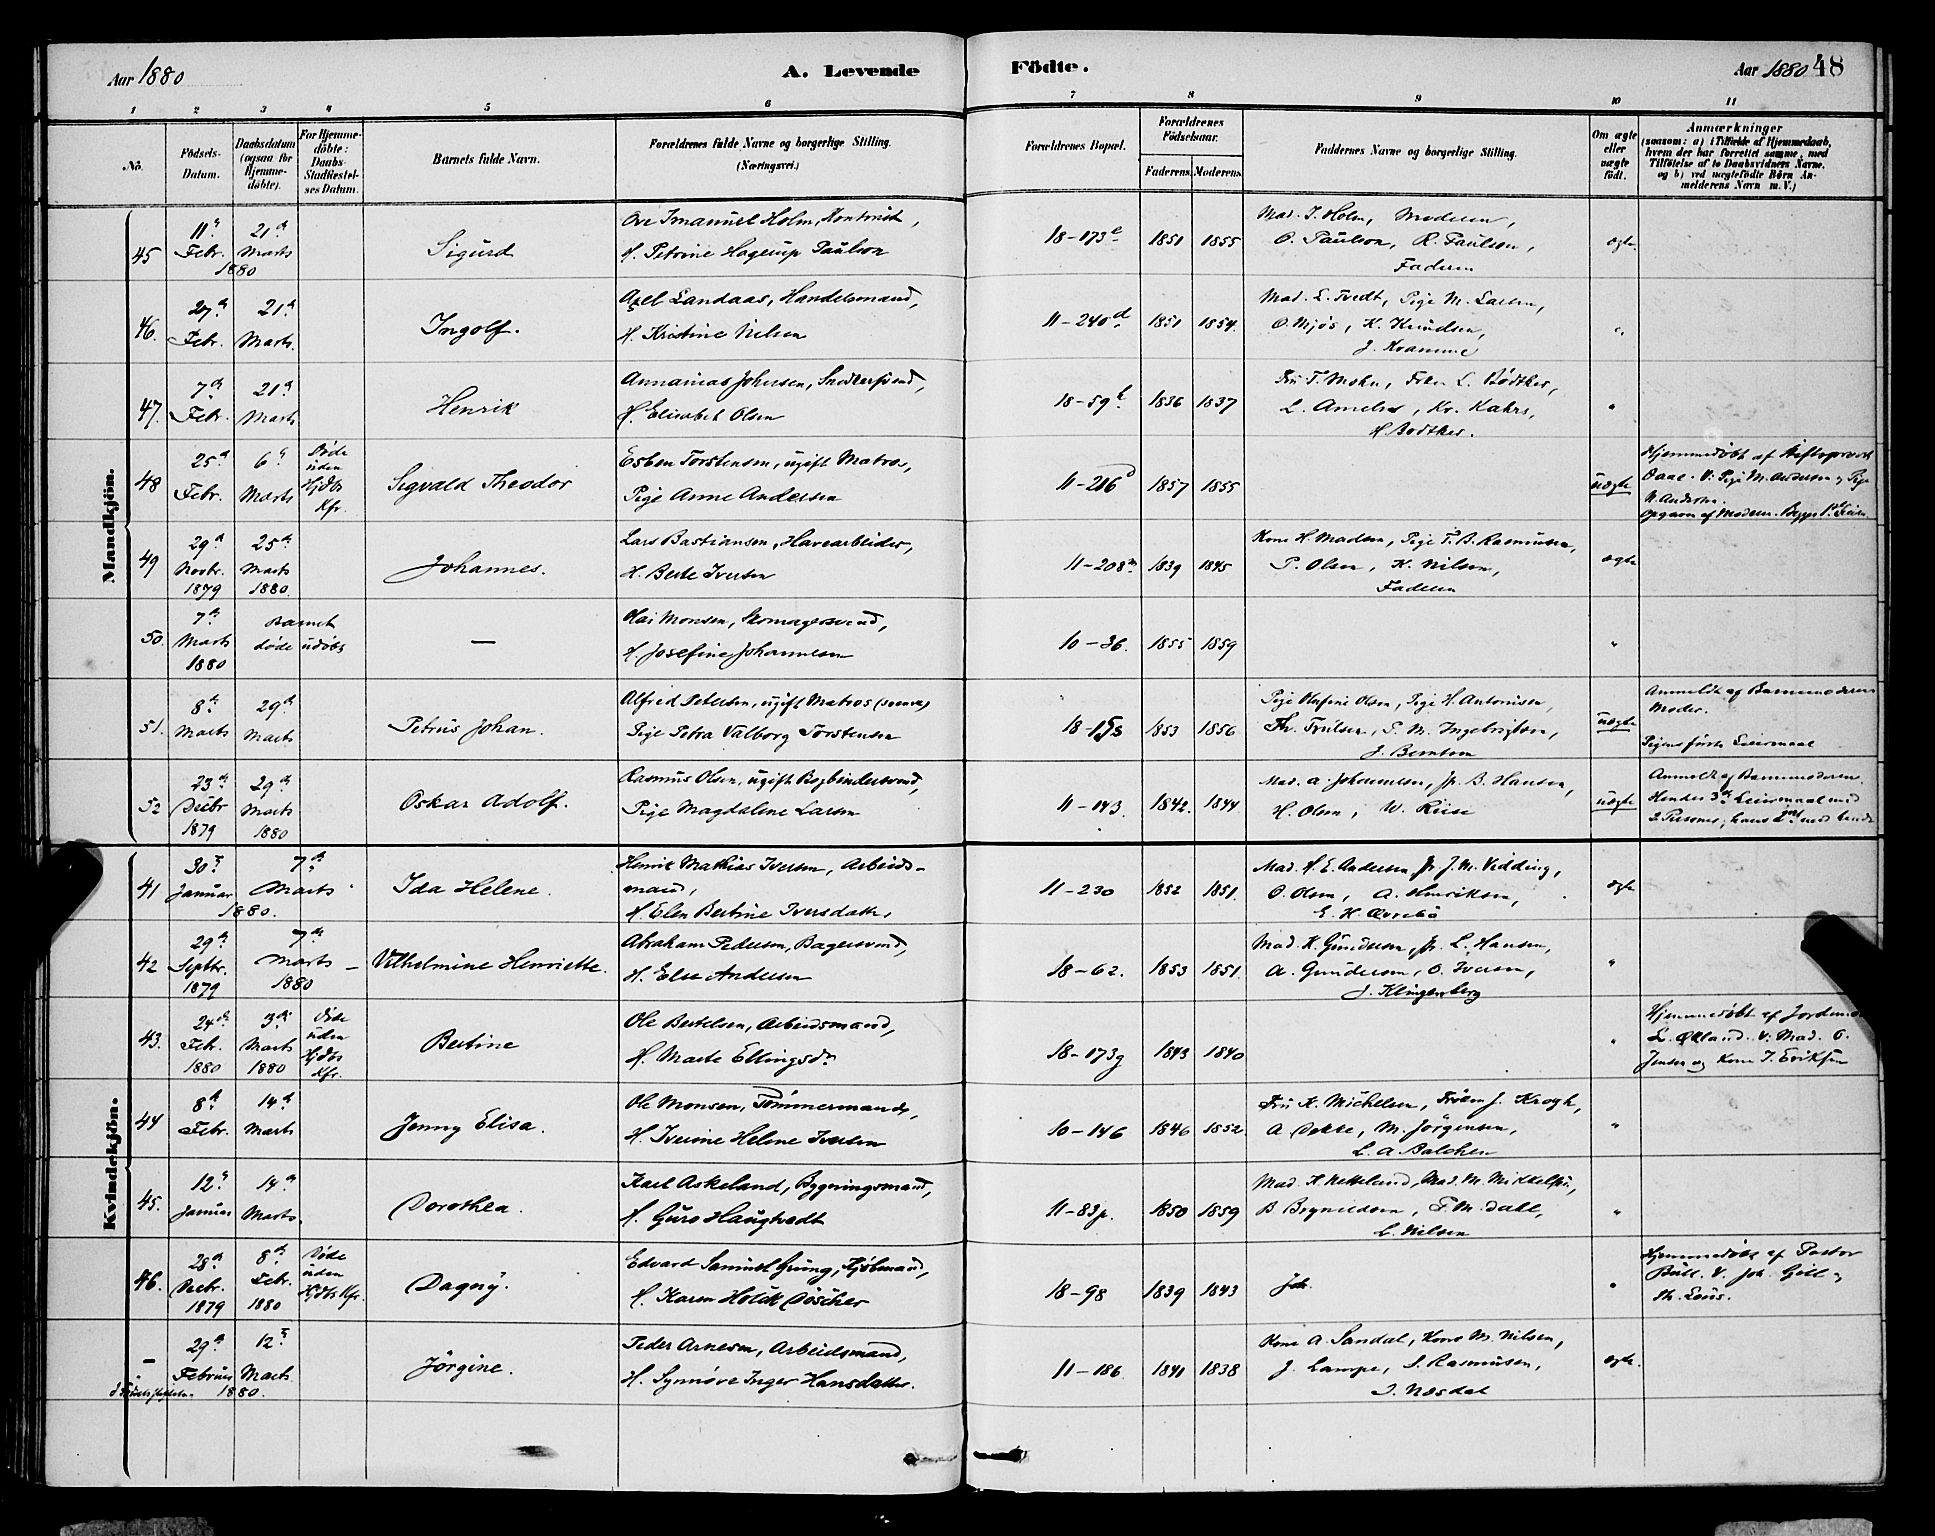 Aar 1880
A. Levende
Födte.
Aar 1880
48
1 2 3 4 5 6 7 8 9 10 11
No.
Födsels-
Datum.
Daabsdatum
(ogsaa for
Hjemme-
döbte).
For Hjemme-
döbte:
Daabs-
Stadfæstel-
ses Datum.
Barnets fulde Navn.
Forældrenes fulde Navne og borgerlige Stilling.
(Næringsvei.)
Forældrenes Bopæl.
Forældrenes
Födselsaar.
Faderens. Moderens.
Faddernes Navne og borgerlige Stilling.
Om ægte
eller
uægte
födt.
Anmærkninger
(saasom: a) i Tilfælde af Hjemmedaab,
hvem der har forrettet samme, med
Tilföielse af to Daabsvidners Navne,
og b) ved uægtefödte Börn An-
melderens Navn m. V.)
Mandkjön.
45
11te Febr.
21de Marts
1880
Sigurd
Ove Imanuel Holm, Kontorist,
H. Petrine Hagerup Paulson
18-173
1851 1855
Mad. J. Holm, Moderen,
O. Paulson, R. Paulson,
Faderen
ægte
46.
27de Febr.
21de Marts.
Ingolf.
Axel Landaas, Handelsmand,
H. Kristine Nilsen
11-240d
1851 1854.
Mad. L. Tvedt, Pige M. Larsen,
O. Mjös, K. Knudsen,
J. Kvamme
"
47.
7de Febr.
21de Marts
Henrik
Annanias Johnsen, Snedkersvend,
H. Elisabet Olsen
18-59
1836 1837
Fru T. Mohn, Frkn L. Bödtker,
L. Amelns, Kr. Kahrs,
H. Bödtker.
"
48
25de Febr.
6te Marts
Döde
uden
Hjdbs
Kfr.
Sigvald Theodor
Esben Torstensen, ugift Matros,
Pige Anne Andersen
11-216
1857 1855
uægte
Hjemmedöbt af Stiftsprovst
Daae. V: Pige M. Andersen og Pige
N. Andersen.
Opgaven af Moderen.
49
29de Novbr.
1879
25de Marts
1880
Johannes.
Lars Bastiansen, Havearbeider,
H. Berte Iversen
11-208
1839 1845
Kone H. Madsen, Pige T. B. Rasmussen,
P. Olsen, K. Nilsen,
Faderen
ægte
50.
7de Marts
1880
Barnet
döde udöbt
—
Olai Monsen, Skomagersvend,
H. Josefine Johannesen
10-36.
1855 1859
"
51.
8de Marts
29de Marts
Petrus Johan.
Alfred Petersen, ugift Matros
Pige Petra Valborg Torstensen
18-
1853 1856
Pige Olafine Olsen, Pige H. Antonisen,
P. M. Ingebrigtsen,
J. Berntsen
uægte
Anmeldt af Barnemoderens
Moder.
Pigens förste Leiermaal
52
23de Decbr
1879
29de Marts
1880
Oskar Adolf.
Rasmus Olsen, ugift Bogbindersvend,
Pige Magdalene Larsen
11-143.
1842. 1844
Mad. A. Johannesen, Jr. B. Hansen,
H. Olsen, W. Riise
uægte
Anmeldt af Barnemoderen.
Hendes 3de Leiermaal med
2 Personer, hans 2det med hende
Kvindekjön.
41
30te Januar
7de Marts
1880.
Ida Helene.
Henrik Mathias Iversen, Arbeids-
mand,
H. Elen Bertine Iversdatter
11-230
1852 1851.
Mad. H. E. Andersen, Jr. J. M. Vidding,
O. Olsen, A. Henriksen,
E. H. Övrebö
ægte
42
29de Septbr.
1879
7de Marts
1880
Vilhelmine Henriette.
Abraham Pedersen, Bagersvend,
H. Else Andersen
18-62.
1853 1851.
Mad. K. Gundersen, Jr. L. Hansen,
A. Gundersen, O. Iversen,
J. Klingenberg
"
43.
24de Febr.
1880
3de Marts
1880
Döde
uden
Hjdbs
Kfr.
Bertine
Ole Bertelsen, Arbeidsmand,
H. Marte Ellingsdr
18-173g
1843 1840
"
Hjemmedöbt af Jordemor
L. Ökland. V: Mad. O.
Jensen og Kone J. Eriksen
44
8de Febr.
14de Marts
Jenny Elisa.
Ole Monsen, Tömmermand,
H. Iverine Helene Iversen
10-146
1846 1852
Fru K. Michelsen, Fröken J. Krogh,
A. Dekke, M. Jörgensen,
L. A. Balchen
"
45.
12te Januar
14de Marts.
Dorothea.
Karl Askeland, Bygningsmand,
H. Guro Haugtvedt
11-83p.
1850 1859
Mad. K. Nettelund, Mad. M. Mikkelsen,
B. Brynildsen, T. M. Dahl,
L. Nilsen
"
46.
28de Decbr.
1879
8de Febr.
1880
Döde
uden
Hjdbs Kfr.
Dagny.
Edvard Samuel Grung, Kjöbmand,
H. Karen Holck Döscher
18-98
1839 1843
Joh.
"
Hjemmedöbt af Pastor
Bull. V. Joh. Gill og
Th. Lous.
—
29de Februar
12te Marts
1880.
Jörgine.
Peder Arnesen, Arbeidsmand,
H. Synnöve Inger Hansdatter.
11-186
1841 1838
Kone A. Sandal, Kone M. Nilsen,
J. Lampe, S. Rasmussen,
J. Næsdal
ægte.